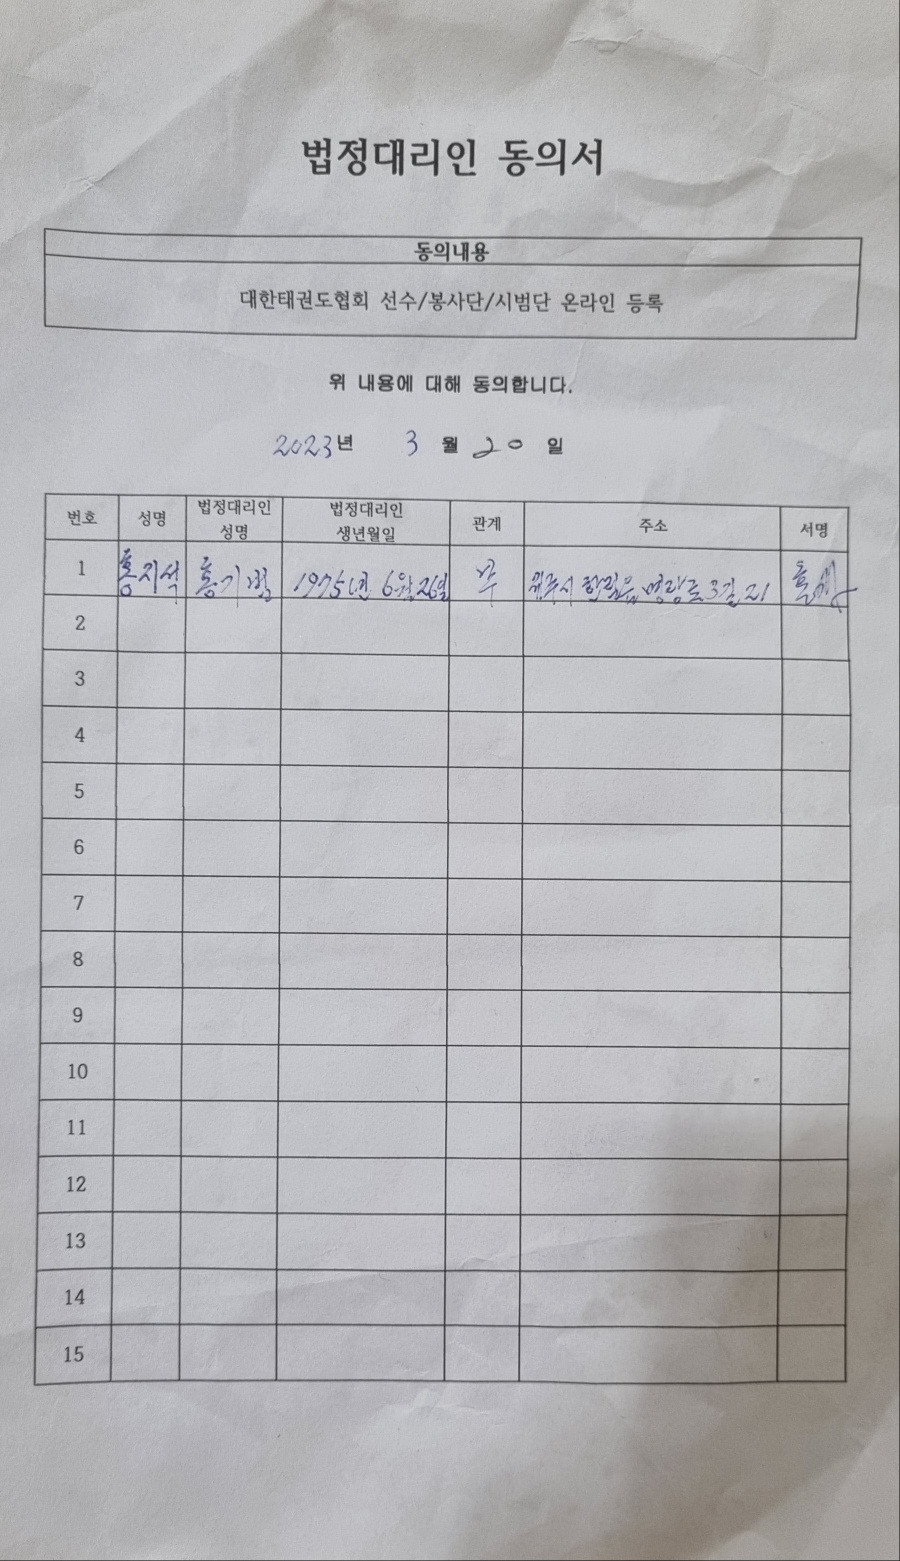 법정대리인 동의서
동의내용
대한태권도협회 선수/봉사단/시범단 온라인 등록
위 내용에 대해 동의합니다.
2023년 3월 20일
번호 성명 법정대리인 성명 법정대리인 생년월일 관계 주소 서명
1 홍지석 홍기범 1975년 6월26일 부 시 로3길 21
2
3
4
5
6
7
8
9
10
11
12
13
14
15